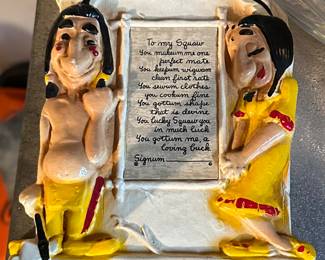 To my Squaw
You makeum me one
perfect mate
You keepum wigwam
clean first rate
You sewum clothes
you cookum fine
You gottum shape
that is devine
You lucky Squaw you
in much luck
You gottum me, a
loving buck
Signum